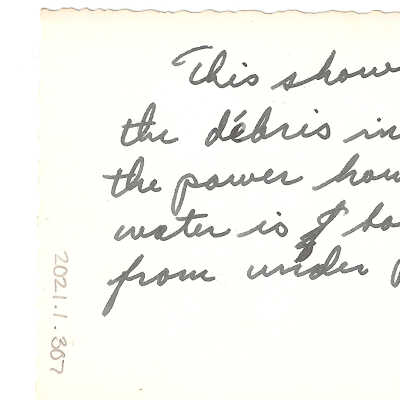 This show
the débris in
the power hou
water is
from under
2021.1.307